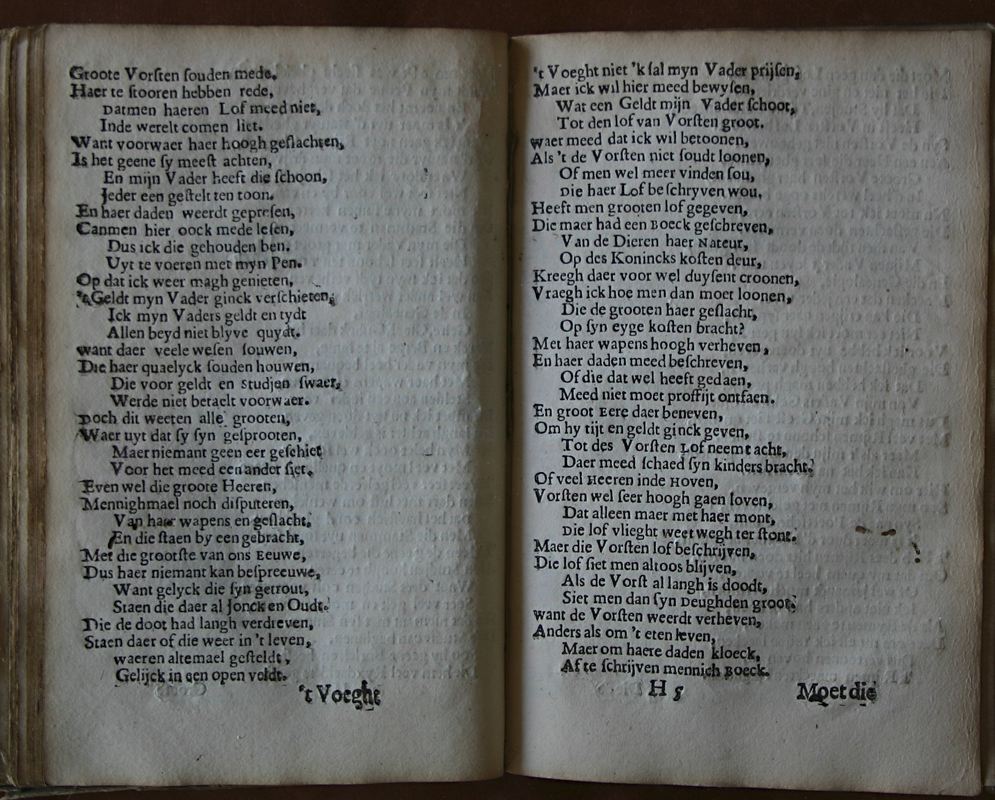 Groote Vorſten ſouden mede.
Haer te ſtooren hebben rede,
Datmen haeren Lof meed niet,
Inde werelt comen liet.
Want voorwaer haer hoogh geſlachten,
Is het geene ſy meeſt achten,
En mijn Vader heeft die ſchoon,
Jeder een geſtelt ten toon.
En haer daden weerdt gepreſen,
Canmen hier oock mede leſen,
Dus ick die gehouden ben.
Uyt te voeren met myn Pen.
Op dat ick weer magh genieten,
't Geldt myn Vader ginck verſchieten,
Ick myn Vaders geldt en tydt
Allen beyd niet blyve quydt.
want daer veele weſen ſouwen,
Die haer quaelyck ſouden houwen,
Die voor geldt en studjen ſwaer,
Werde niet betaelt voorwaer.
Doch dit weeten alle grooten,
Waer uyt dat ſy ſyn geſprooten,
Maer niemant geen eer geſchiet
Voor het meed een ander ſiet.
Even wel die groote Heeren,
Mennighmael noch diſputeren,
Van haer wapens en geſlacht,
En die ſtaen by een gebracht,
Met die grootſte van ons Eeuwe,
Dus haer niemant kan beſpreeuwe,
Want gelyck die ſyn getrout,
Staen die daer al Jonck en Oudt.
Die de doot had langh verdreven,
Staen daer of die weer in 't leven,
waeren altemael geſteldt,
Gelijck in een open veldt.
't Voeght
't Voeght niet 'k ſal myn Vader prijſen,
Maer ick wil hier meed bewyſen,
Wat een Geldt mijn Vader ſchoot,
Tot den lof van Vorſten groot.
waer meed dat ick wil betoonen,
Als 't de Vorſten niet ſoudt loonen,
Of men wel meer vinden ſou,
Die haer Lof beſchryven wou,
Heeft men grooten lof gegeven,
Die maer had een Boeck geſchreven,
Van de Dieren haer Nateur,
Op des Konincks koſten deur,
Kreegh daer voor wel duyſent croonen,
Vraegh ick hoe men dan moet loonen,
Die de grooten haer geſlacht,
Op ſyn eyge koſten bracht?
Met haer wapens hoogh verheven,
En haer daden meed beſchreven,
Of die dat wel heeft gedaen,
Meed niet moet proffijt ontfaen.
En groot Eere daer beneven,
Om hy tijt en geldt ginck geven,
Tot des Vorſten Lof neemt acht,
Daer meed ſchaed ſyn kinders bracht.
Of veel Heeren inde Hoven,
Vorſten wel ſeer hoogh gaen loven,
Dat alleen maer met haer mont,
Die lof vlieght weet wegh ter ſtont.
Maer die Vorſten lof beſchrijven,
Die lof ſiet men altoos blijven,
Als de Vorſt al langh is doodt,
Siet men dan ſyn Deughden groot.
want de Vorſten weerdt verheven,
Anders als om 't eten leven,
Maer om haere daden kloeck,
Af te ſchrijven mennich Boeck.
H 5
Moet die